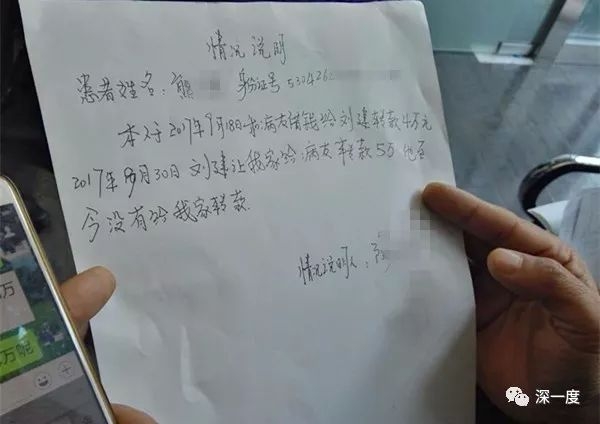 情况说明
患者姓名：熊 身份证号 530426
本人于2017年9月18日 病友借钱给刘建转款4万元
2017年9月30日刘建让我家给病友转款5万他至
今没有给我家转款.
情况说明人：
万
万呢
深一度